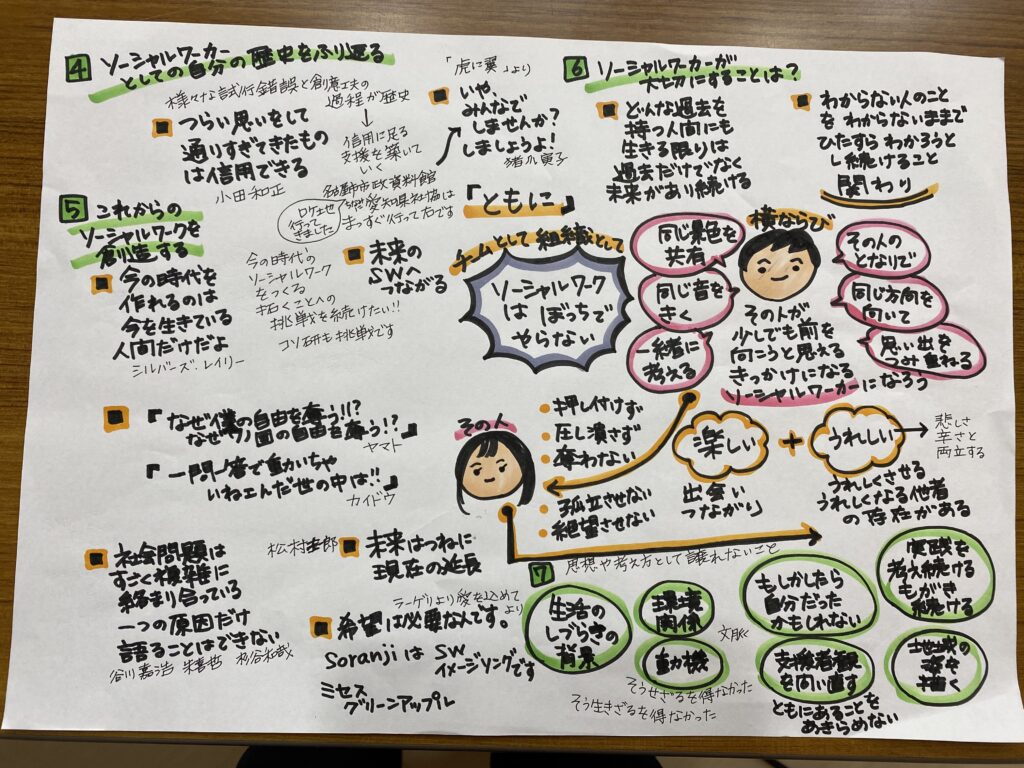 4 ソーシャルワーカー
としての自分の歴史をふり返る
様々な試行錯誤と創意工夫の
過程が歴史
■ つらい思いをして
通りすぎてきたもの
は信用できる
小田和正
信用に足る
支援を築いて
いく
「虎に翼」より
■ いや、
みんなで
しませんか?
しましょうよ!
猪爪寅子
名古屋市政資料館
愛知県社協は
まっすぐ行って右です
ロケ地
行って
きました
5 これからの
ソーシャルワークを
創造する
■ 今の時代を
作れるのは
今を生きている
人間だけだよ
シルバーズ・レイリー
今の時代の
ソーシャルワーク
をつくる
拓くことへの
挑戦を続けたい!!
コソ研も挑戦です
■ 未来の
SWへ
つながる
■ 『なぜ僕の自由を奪う!!?
なぜワノ国の自由を奪う!?』
ヤマト
『一問一答で動いちゃ
いねェんだ世の中は!!』
カイドウ
■ 社会問題は
すごく複雑に
絡まり合っている
一つの原因だけ
語ることはできない
谷川嘉浩 朱喜哲 杉谷和哉
松村圭一郎
■ 未来はつねに
現在の延長
ラーゲリより愛を込めて
より
■ 希望は必要なんです。
Soranjiは SW
イメージソングです
ミセス
グリーンアップル
6 ソーシャルワーカーが
大切にすることは?
■ どんな過去を
持つ人間にも
生きる限りは
過去だけでなく
未来があり続ける
■ わからない人のこと
を わからないままで
ひたすら わかろうと
し続けること
関わり
『ともに』
チームとして 組織として
ソーシャルワーク
は ぼっちで
やらない
横ならび
同じ景色を
共有
同じ音を
きく
一緒に
考える
その人の
となりで
同じ方向を
向いて
思い出を
つみ重ねる
その人が
少しでも前を
向こうと思える
きっかけになる
ソーシャルワーカーになろう
その人
・押し付けず
・圧し潰さず
・奪わない
・孤立させない
・絶望させない
楽しい + うれしい
悲しさ
辛さと
両立する
出会い
つながり
うれしくさせる
うれしくなる他者
の存在がある
思想や考え方として譲れないこと
7
生活の
しづらさの
背景
環境
関係
動機
文脈
そうせざるを得なかった
そう生きざるを得なかった
もしかしたら
自分だった
かもしれない
支援者観
を問い直す
ともにあることを
あきらめない
実践を
考え続ける
もがき
続ける
地域の
姿を
描く